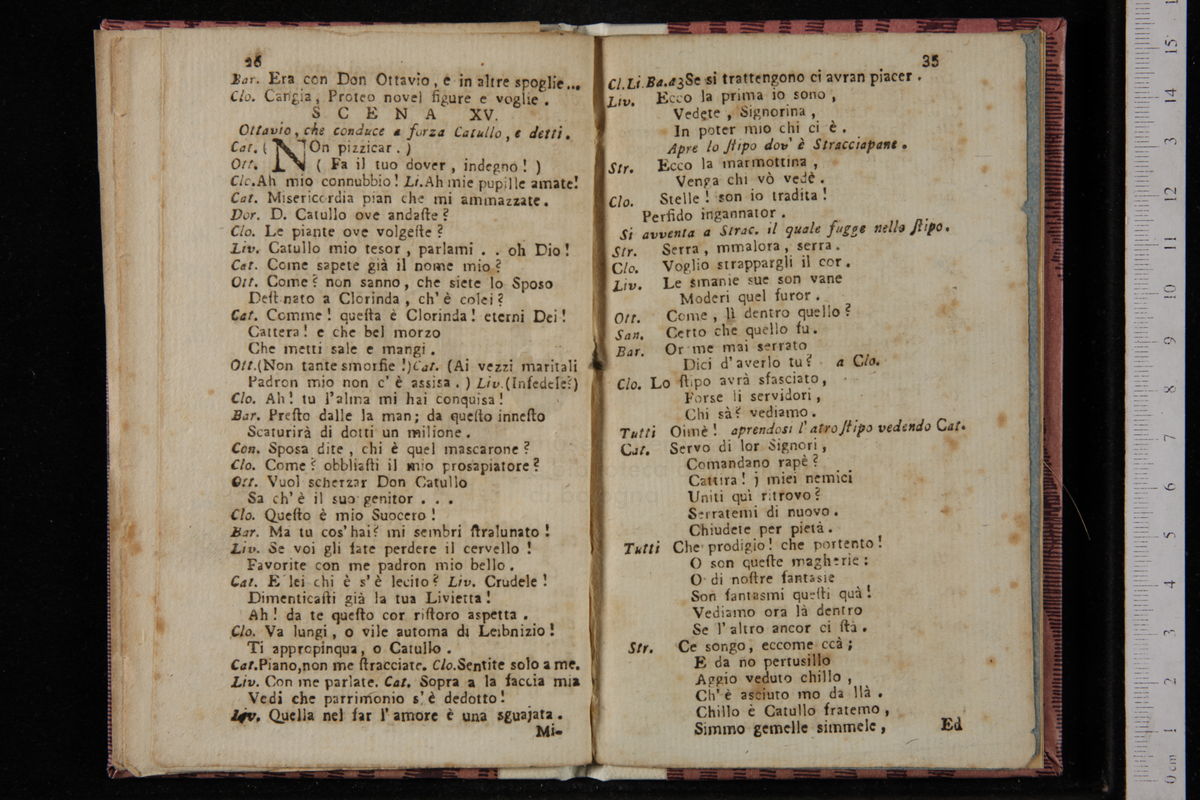 26
Bar. Era con Don Ottavio, e in altre spoglie...
Clo. Cangia, Proteo novel figure e voglie.
SCENA XV.
Ottavio, che conduce a forza Catullo, e detti.
Cat. ( NOn pizzicar. )
Ott. ( Fa il tuo dover, indegno! )
Clo. Ah mio connubbio! Li. Ah mie pupille amate!
Cat. Misericordia pian che mi ammazzate.
Dor. D. Catullo ove andaſte?
Clo. Le piante ove volgeſte?
Liv. Catullo mio tesor, parlami . . oh Dio!
Cat. Come sapete già il nome mio?
Ott. Come? non sanno, che siete lo Sposo
Deſtinato a Clorinda, ch' è colei?
Cat. Comme! queſta è Clorinda! eterni Dei!
Cattera! e che bel morzo
Che metti sale e mangi.
Ott. (Non tante smorfie!) Cat. (Ai vezzi maritali
Padron mio non c' è assisa.) Liv. (Infedele?)
Clo. Ah! tu l'alma mi hai conquisa!
Bar. Preſto dalle la man; da queſto inneſto
Scaturirà di dotti un milione.
Con. Sposa dite, chi è quel mascarone?
Clo. Come? obbliaſti il mio prosapiatore?
Ott. Vuol scherzar Don Catullo
Sa ch' è il suo genitor . . .
Clo. Queſto è mio Suocero!
Bar. Ma tu cos' hai? mi sembri ſtralunato!
Liv. Se voi gli fate perdere il cervello!
Favorite con me padron mio bello.
Cat. E lei chi è s' è lecito? Liv. Crudele!
Dimenticaſti già la tua Livietta!
Ah! da te queſto cor riſtoro aspetta.
Clo. Va lungi, o vile automa di Leibnizio!
Ti appropinqua, o Catullo.
Cat. Piano, non me ſtracciate. Clo. Sentite solo a me.
Liv. Con me parlate. Cat. Sopra a la faccia mia
Vedi che parrimonio s' è dedotto!
Liv. Quella nel far l' amore è una sguajata.
Mi-
35
Cl. Li. Ba. a3 Se si trattengono ci avran piacer.
Liv. Ecco la prima io sono,
Vedete, Signorina,
In poter mio chi ci è.
Apre lo ſtipo dov' è Stracciapane.
Str. Ecco la marmottina,
Venga chi vò vedè.
Clo. Stelle! son io tradita!
Perfido ingannator.
Si avventa a Strac. il quale fugge nello ſtipo.
Str. Serra, mmalora, serra.
Clo. Voglio strappargli il cor.
Liv. Le smanie sue son vane
Moderi quel furor.
Ott. Come, lì dentro quello?
San. Certo che quello fu.
Bar. Or me mai serrato
Dici d'averlo tu? a Clo.
Clo. Lo ſtipo avrà sfasciato,
Forse li servidori,
Chi sà? vediamo.
Tutti Oimè! aprendosi l' atro ſtipo vedendo Cat.
Cat. Servo di lor Signori,
Comandano rapè?
Cattira! j miei nemici
Uniti quì ritrovo?
Serratemi di nuovo.
Chiudete per pietà.
Tutti Che prodigio! che portento!
O son queſte magherie:
O di noſtre fantasie
Son fantasmi queſti quà!
Vediamo ora là dentro
Se l' altro ancor ci ſtà.
Str. Ce songo, eccome ccà;
E da no pertusillo
Aggio veduto chillo,
Ch' è asciuto mo da llà.
Chillo è Catullo fratemo,
Simmo gemelle simmele,
Ed
15
14
13
12
11
10
9
8
7
6
5
4
3
2
1
0 cm